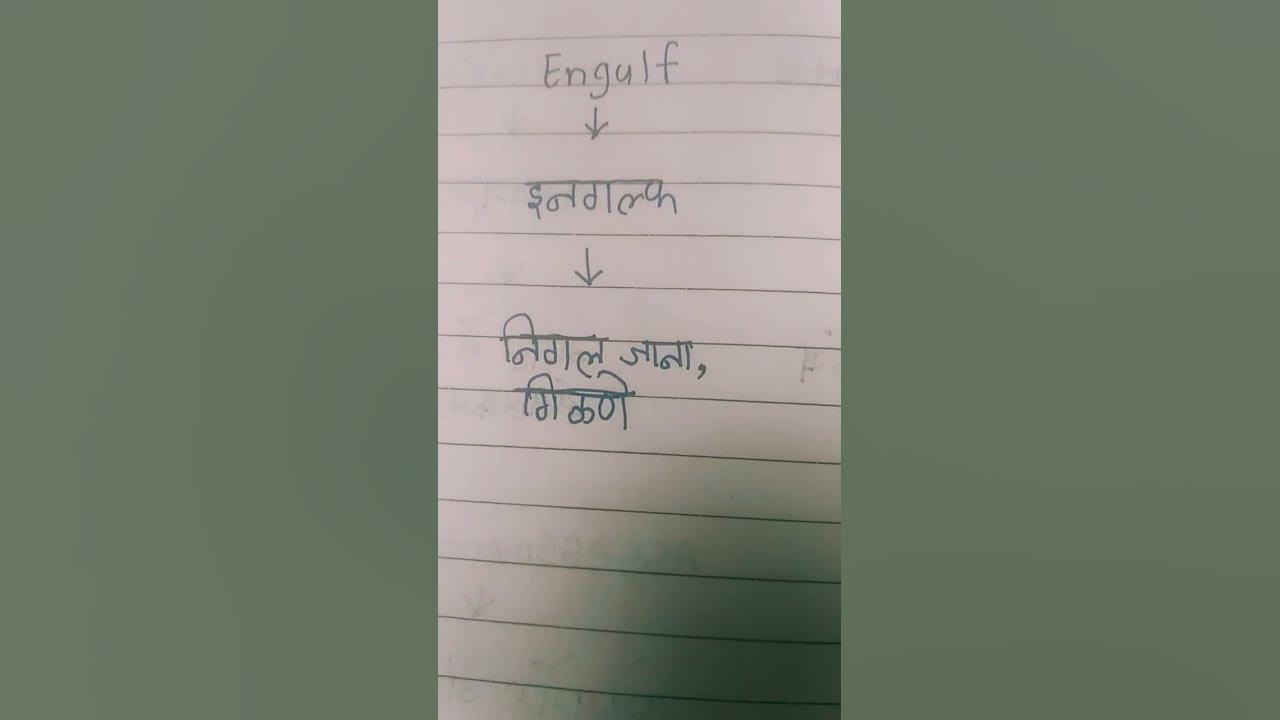 Engulf
↓
इनगल्फ
↓
निगल जाना,
गिळणे